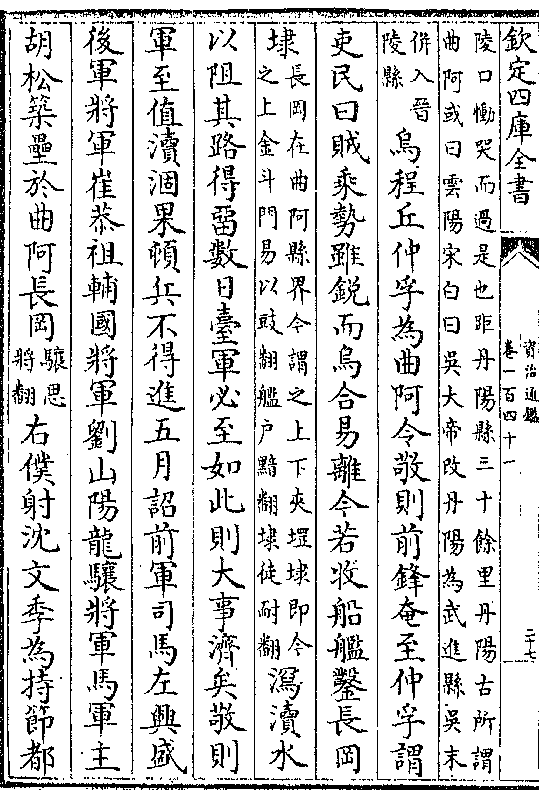 欽定四庫全書
資治通鑑
卷一百四十一
二十七
陵口慟哭而過是也距丹陽縣三十餘里丹陽古所謂
曲阿或曰雲陽宋白曰吳大帝改丹陽為武進縣吳末
併入晉
陵縣
烏程丘仲孚為曲阿令敬則前鋒奄至仲孚謂
吏民曰賊乘勢雖銳而烏合易離今若收船艦鑿長岡
埭
長岡在曲阿縣界今謂之上下夾堽埭即今
之上金斗門易以豉翻艦户黯翻埭徒耐翻
瀉瀆水
以阻其路得留數日臺軍必至如此則大事濟矣敬則
軍至值瀆涸果頓兵不得進五月詔前軍司馬左興盛
後軍將軍崔恭祖輔國將軍劉山陽龍驤將軍馬軍主
胡松築壘於曲阿長岡
驤思
將翻
右僕射沈文季為持節都